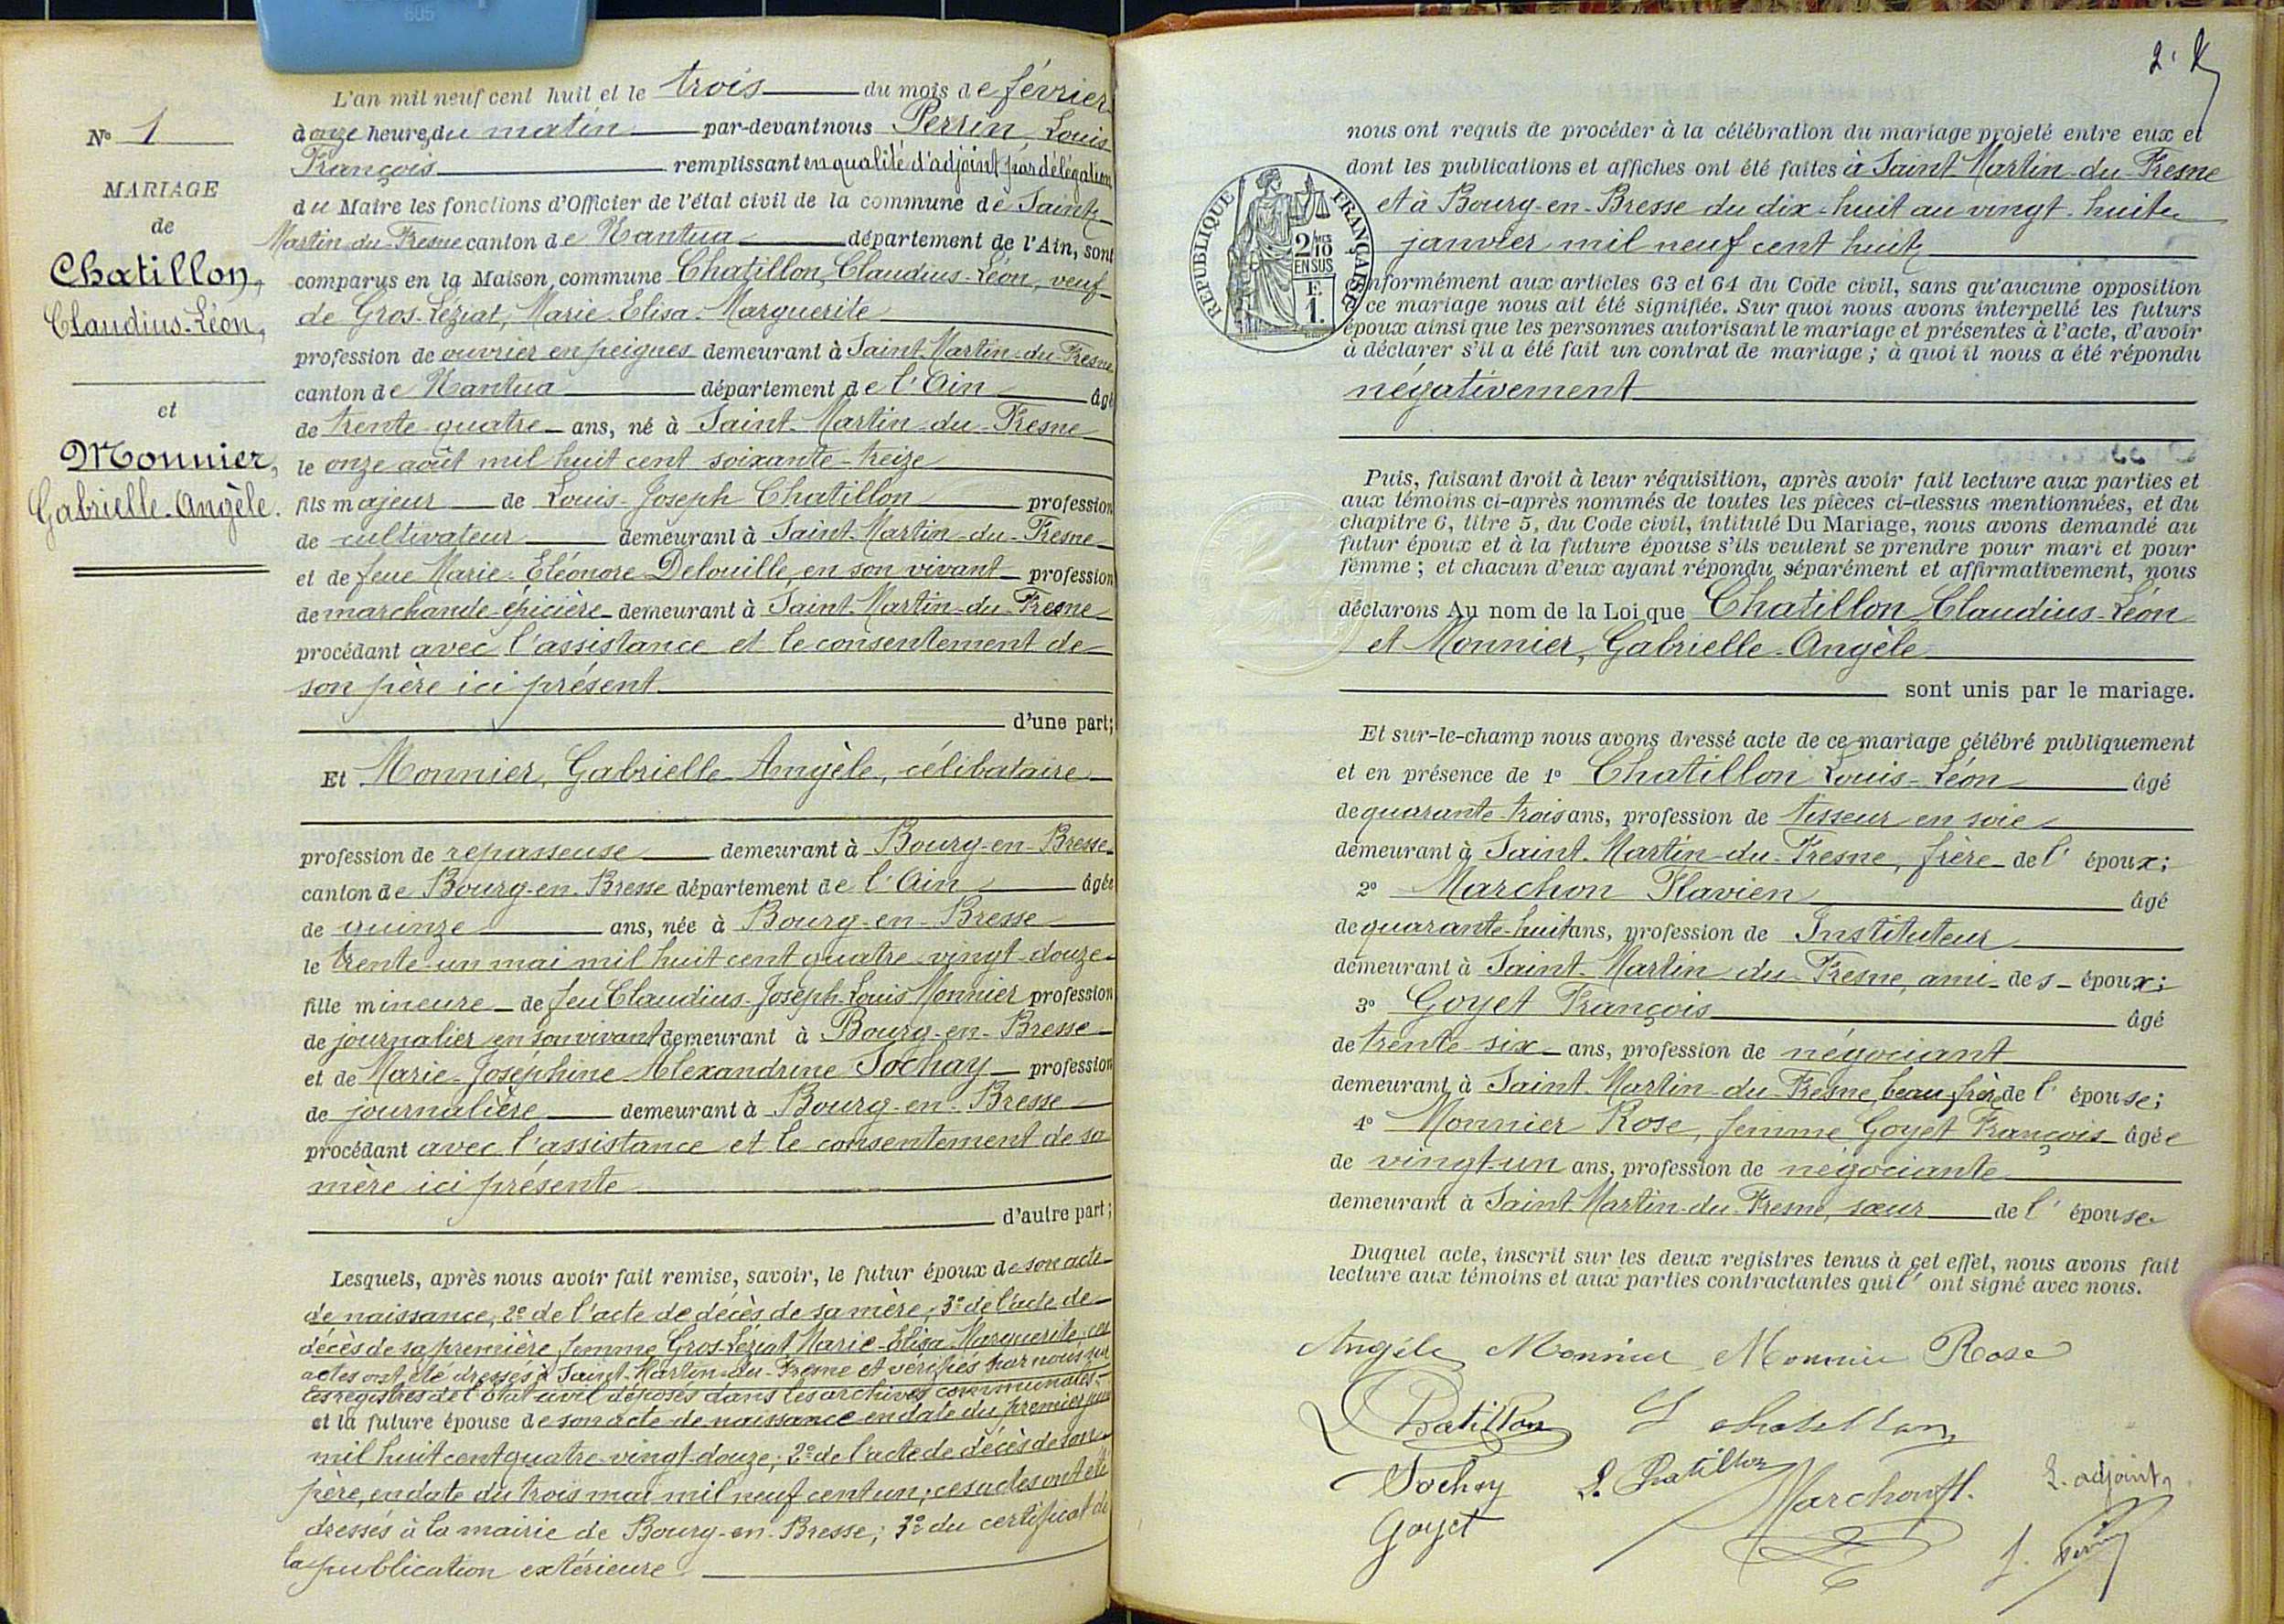 605
N° 1
MARIAGE
de
Chatillon,
Claudius-Léon,
et
Monnier,
Gabrielle-Angèle.
L'an mil neuf cent huit et le trois du mois de février
à onze heures du matin par-devant nous Perrin, Louis
François remplissant en qualité d'adjoint par délégation
du Maire les fonctions d'Officier de l'état civil de la commune de Saint-
Martin-du-Fresne canton de Nantua département de l'Ain, sont
comparus en la Maison commune Chatillon, Claudius-Léon, veuf
de Gros-Léziat, Marie-Elisa-Marguerite
profession de ouvrier en peignes demeurant à Saint-Martin-du-Fresne
canton de Nantua département de l'Ain âgé
de trente-quatre ans, né à Saint-Martin-du-Fresne
le onze août mil huit cent soixante-treize
fils majeur de Louis-Joseph Chatillon profession
de cultivateur demeurant à Saint-Martin-du-Fresne
et de feue Marie-Eléonore Delouille, en son vivant profession
de marchande-épicière demeurant à Saint-Martin-du-Fresne
procédant avec l'assistance et le consentement de
son père ici présent
d'une part;
Et Monnier, Gabrielle-Angèle, célibataire
profession de repasseuse demeurant à Bourg-en-Bresse
canton de Bourg-en-Bresse département de l'Ain âgée
de quinze ans, née à Bourg-en-Bresse
le trente-un mai mil huit cent quatre-vingt-douze
fille mineure de feu Claudius-Joseph-Louis Monnier profession
de journalier en son vivant demeurant à Bourg-en-Bresse
et de Marie-Joséphine-Alexandrine Sochay profession
de journalière demeurant à Bourg-en-Bresse
procédant avec l'assistance et le consentement de sa
mère ici présente
d'autre part;
Lesquels, après nous avoir fait remise, savoir, le futur époux de son acte
de naissance, 2° de l'acte de décès de sa mère, 3° de l'acte de
décès de sa première femme Gros-Léziat Marie-Elisa-Marguerite, ces
actes ont été dressés à Saint-Martin-du-Fresne et vérifiés par nous sur
les registres de l'état civil déposés dans les archives communales;
et la future épouse de son acte de naissance en date du premier juin
mil huit cent quatre-vingt-douze; 2° de l'acte de décès de son
père, en date du trois mai mil neuf cent un; ces actes ont été
dressés à la mairie de Bourg-en-Bresse; 3° du certificat de
la publication extérieure
2.
nous ont requis de procéder à la célébration du mariage projeté entre eux et
dont les publications et affiches ont été faites à Saint-Martin-du-Fresne
et à Bourg-en-Bresse du dix-huit au vingt-huit
janvier mil neuf cent huit
RÉPUBLIQUE FRANÇAISE
2/10
EN SUS
E.
1.
conformément aux articles 63 et 64 du Code civil, sans qu'aucune opposition
à ce mariage nous ait été signifiée. Sur quoi nous avons interpellé les futurs
époux ainsi que les personnes autorisant le mariage et présentes à l'acte, d'avoir
à déclarer s'il a été fait un contrat de mariage; à quoi il nous a été répondu
négativement
Puis, faisant droit à leur réquisition, après avoir fait lecture aux parties et
aux témoins ci-après nommés de toutes les pièces ci-dessus mentionnées, et du
chapitre 6, titre 5, du Code civil, intitulé Du Mariage, nous avons demandé au
futur époux et à la future épouse s'ils veulent se prendre pour mari et pour
femme; et chacun d'eux ayant répondu séparément et affirmativement, nous
déclarons Au nom de la Loi que Chatillon, Claudius-Léon
et Monnier, Gabrielle-Angèle
sont unis par le mariage.
Et sur-le-champ nous avons dressé acte de ce mariage célébré publiquement
et en présence de 1° Chatillon Louis-Léon âgé
de quarante-trois ans, profession de tisseur en soie
demeurant à Saint-Martin-du-Fresne, frère de l'époux;
2° Marchon Flavien âgé
de quarante-huit ans, profession de Instituteur
demeurant à Saint-Martin-du-Fresne, ami des époux;
3° Goyet François âgé
de trente-six ans, profession de négociant
demeurant à Saint-Martin-du-Fresne, beau-frère de l'épouse;
4° Monnier Rose, femme Goyet François âgée
de vingt-un ans, profession de négociante
demeurant à Saint-Martin-du-Fresne, sœur de l'épouse
Duquel acte, inscrit sur les deux registres tenus à cet effet, nous avons fait
lecture aux témoins et aux parties contractantes qui l'ont signé avec nous.
Angéle Monnier Monnier Rose
Chatillon L chatillon
Sochay L. Chatillon Marchon fl. L. adjoint,
Goyet f. Perrin